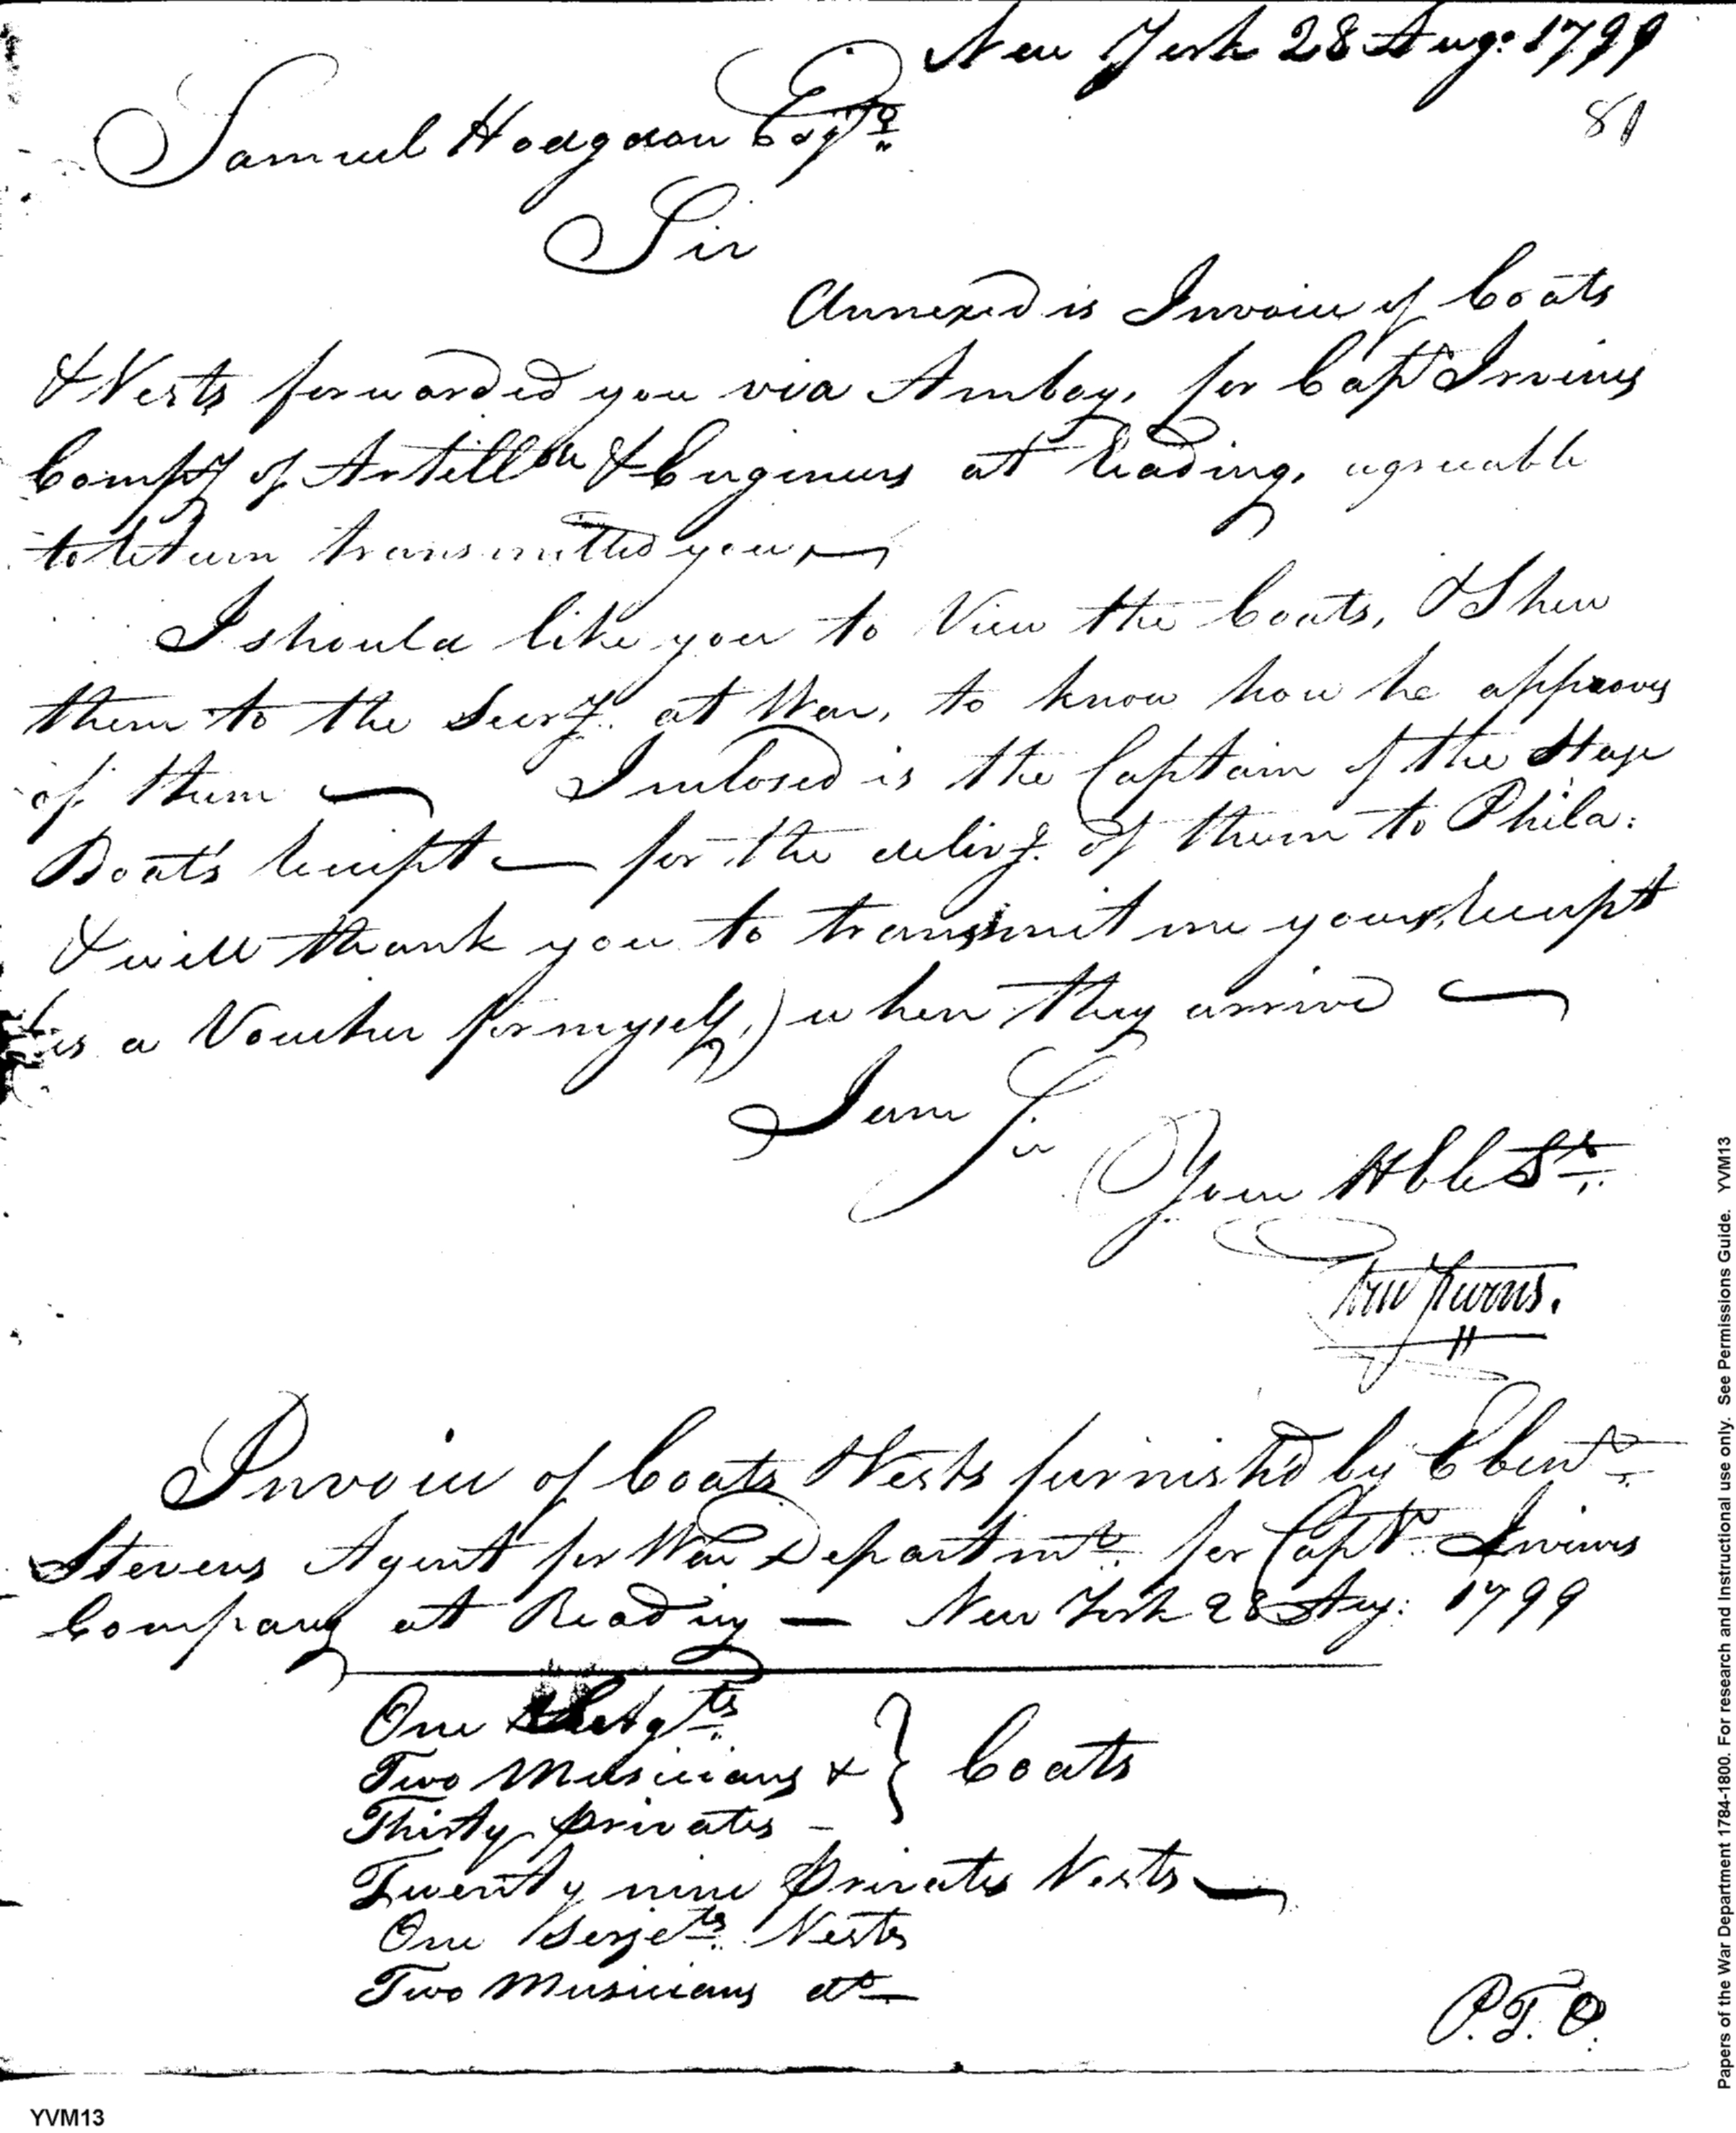 New York 28 Aug: 1799
81
Samuel Hodgdon Esqr
Sir
Annexed is Invoice of Coats
& Vests forwarded you via Amboy, for Capt Irvines
Compy of Artillr & Engineers at Reading, agreeable
to return transmitted you
I should like you to View the Coats, & Shew
them to the Secry. at War, to know how he approves
of them — Inclosed is the Captain of the Stage
Boat's receipt — for the delivy. of them to Phila:
& will thank you to transmit me your receipt
(as a Voucher for myself,) when they arrive —
I am Sir
Your Hble St.
Invoice of Coats & Vests furnish'd by Ebenr.
Stevens Agent for War Departmt. for Capt. Irvines
Company at Reading — New York 28 Aug: 1799
One Serjts
Two Musicians & } Coats
Thirty privates —
Twenty nine privates Vests —
One Serjets. Vests
Two Musicians do —
P.T.O.
YVM13
Papers of the War Department 1784-1800. For research and Instructional use only. See Permissions Guide. YVM13